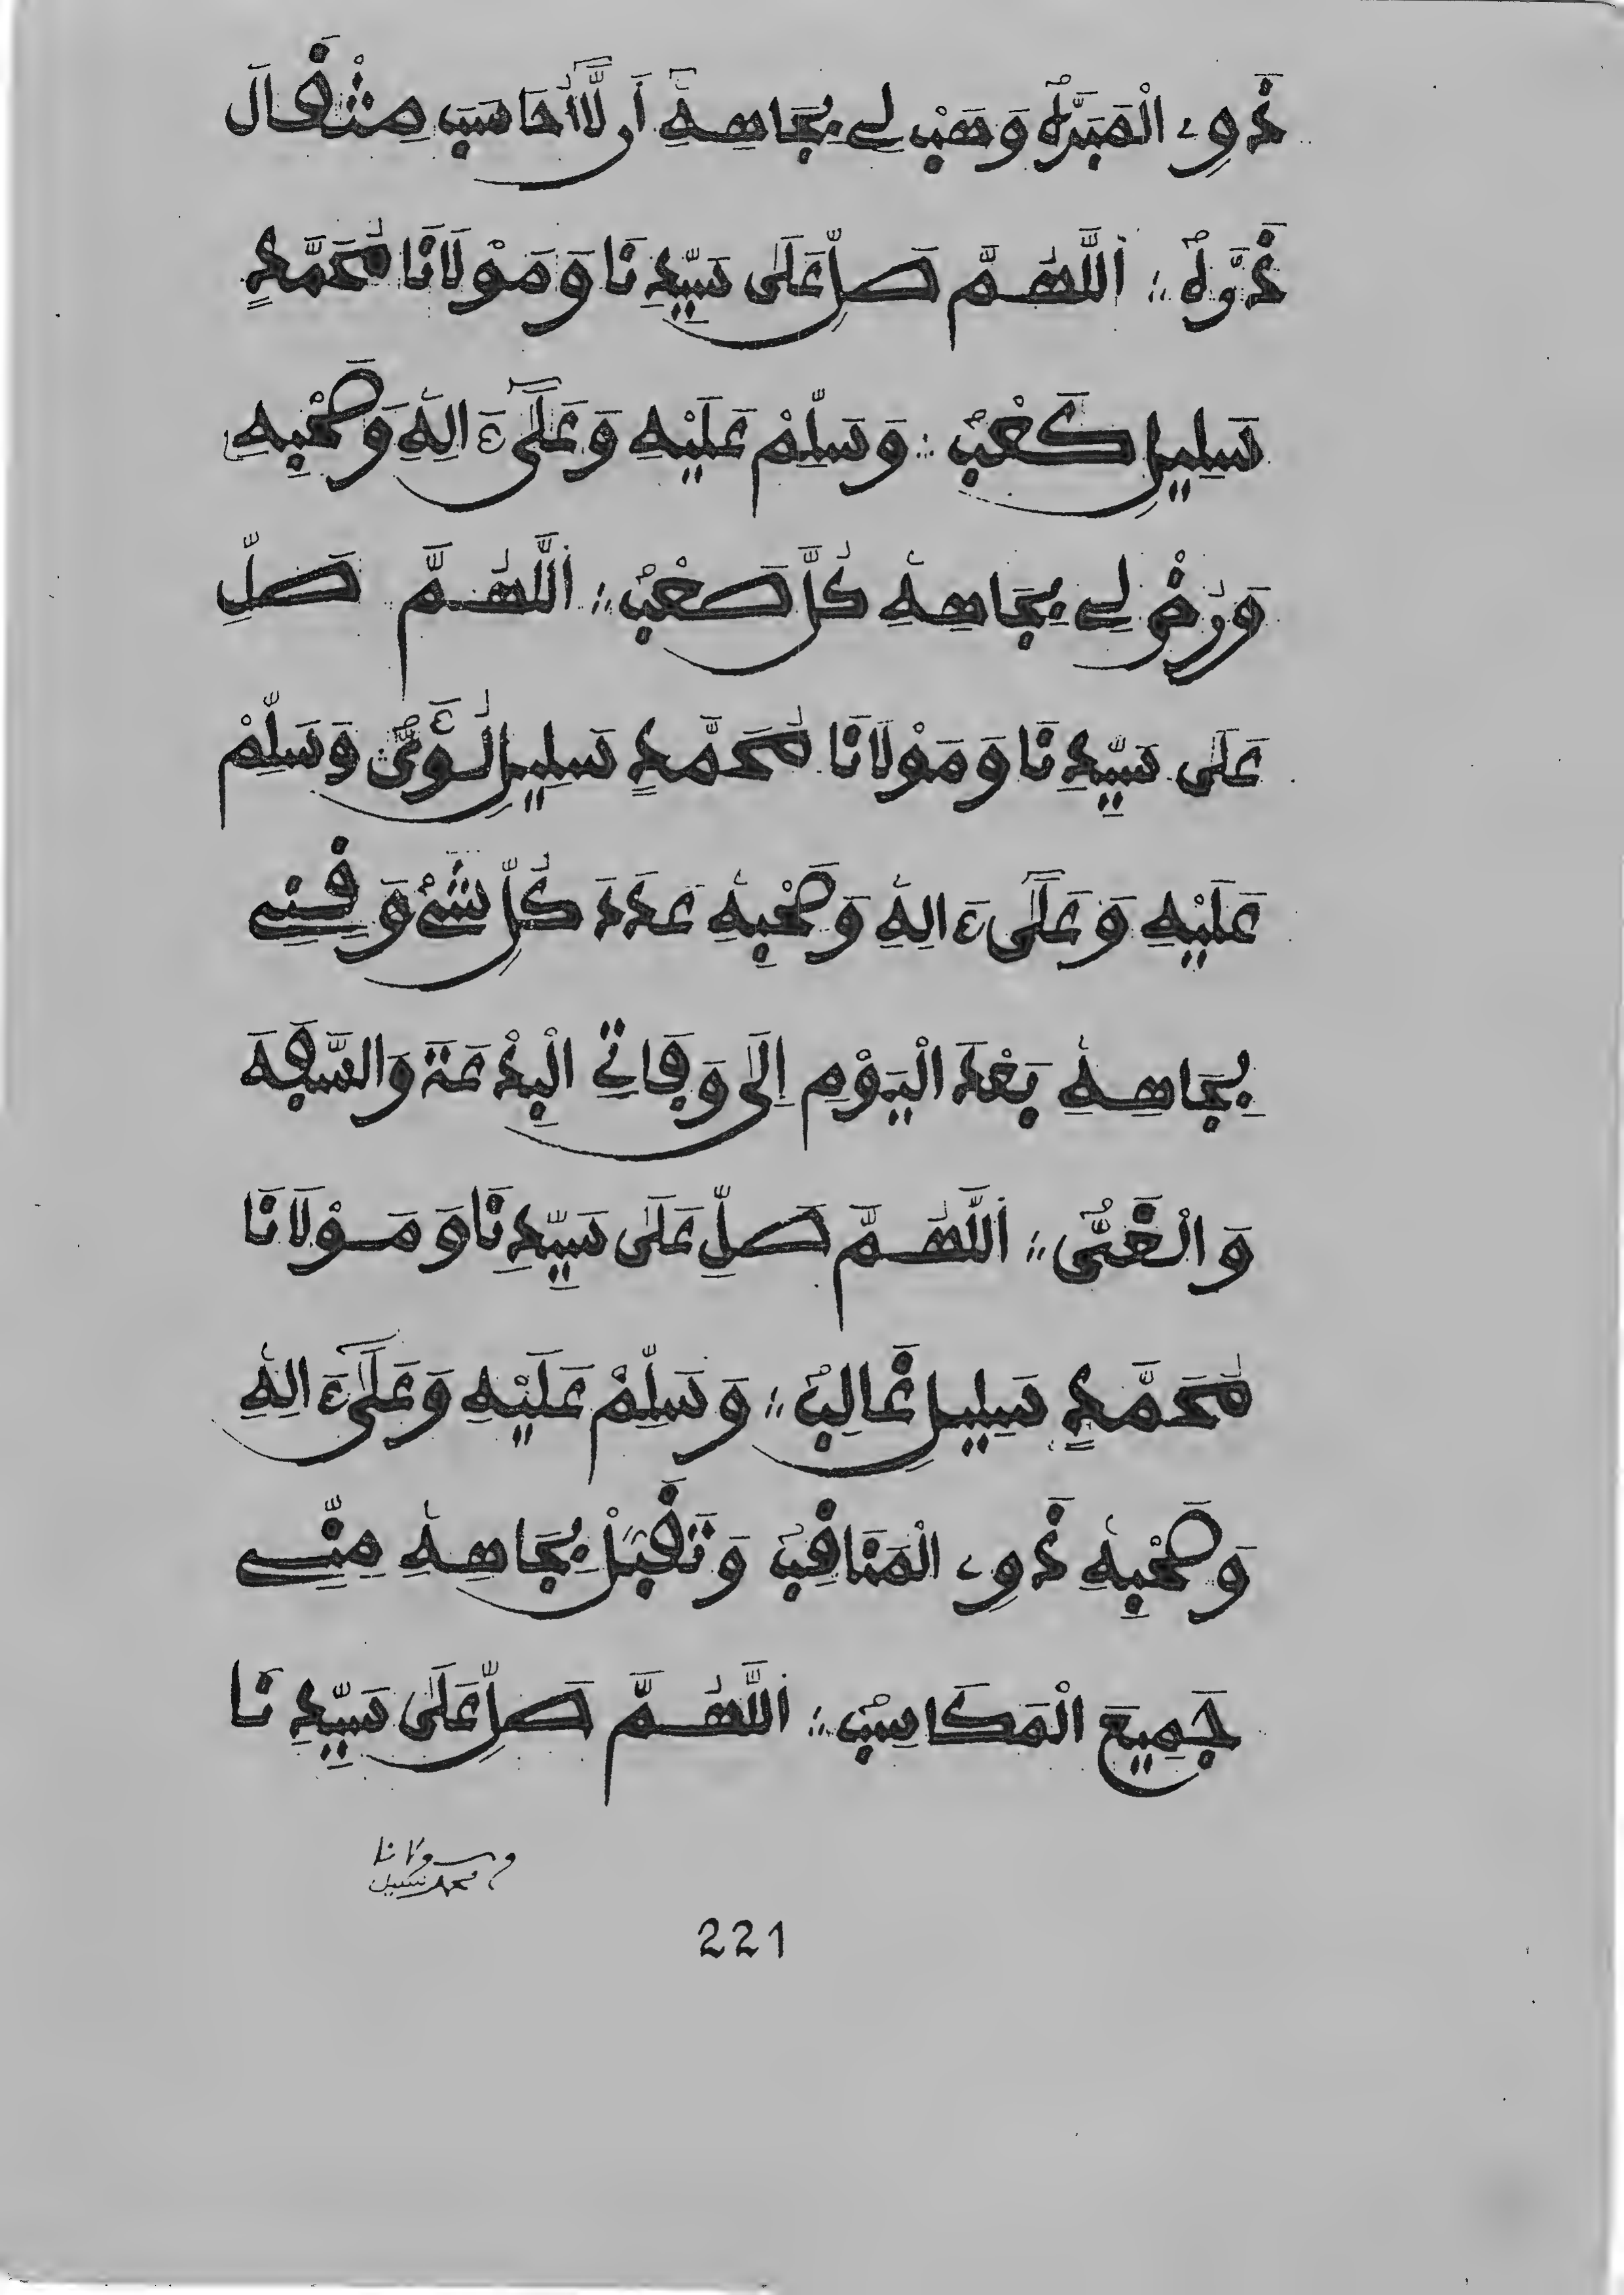 ذَوِے الْمَبَرَّهْ وَهَبْ لِے بِجَاهِهِ أَن لَّا أُحَاسَبَ مِثْقَالَ
ذَرَّهْ؞ اَللَّهُمَّ صَلِّ عَلَى سَيِّدِنَا وَمَوْلَانَا مُحَمَّدٍ
سَلِيلِ كَعْبْ؞ وَسَلِّمْ عَلَيْهِ وَعَلَىٰ ءَالِهِ وَصَحْبِهِ
وَرُضْ لِے بِجَاهِهِ كُلَّ صَعْبْ؞ اَللَّهُمَّ صَلِّ
عَلَى سَيِّدِنَا وَمَوْلَانَا مُحَمَّدٍ سَلِيلِ لُؤَيّْ وَسَلِّمْ
عَلَيْهِ وَعَلَىٰ ءَالِهِ وَصَحْبِهِ عَدَدَ كُلِّ شَيْءٍ وَقِنِے
بِجَاهِهِ بَعْدَ الْيَوْمِ إِلَى وَفَاتِے الْبِدْعَةَ وَالسَّفَهَ
وَالْغَيّْ؞ اَللَّهُمَّ صَلِّ عَلَى سَيِّدِنَا وَمَوْلَانَا
مُحَمَّدٍ سَلِيلِ غَالِبْ؞ وَسَلِّمْ عَلَيْهِ وَعَلَىٰ ءَالِهِ
وَصَحْبِهِ ذَوِے الْمَنَاقِبْ وَتَقَبَّلْ بِجَاهِهِ مِنِّے
جَمِيعَ الْمَكَاسِبْ؞ اَللَّهُمَّ صَلِّ عَلَى سَيِّدِنَا
ومولانا
محمد سليل
221